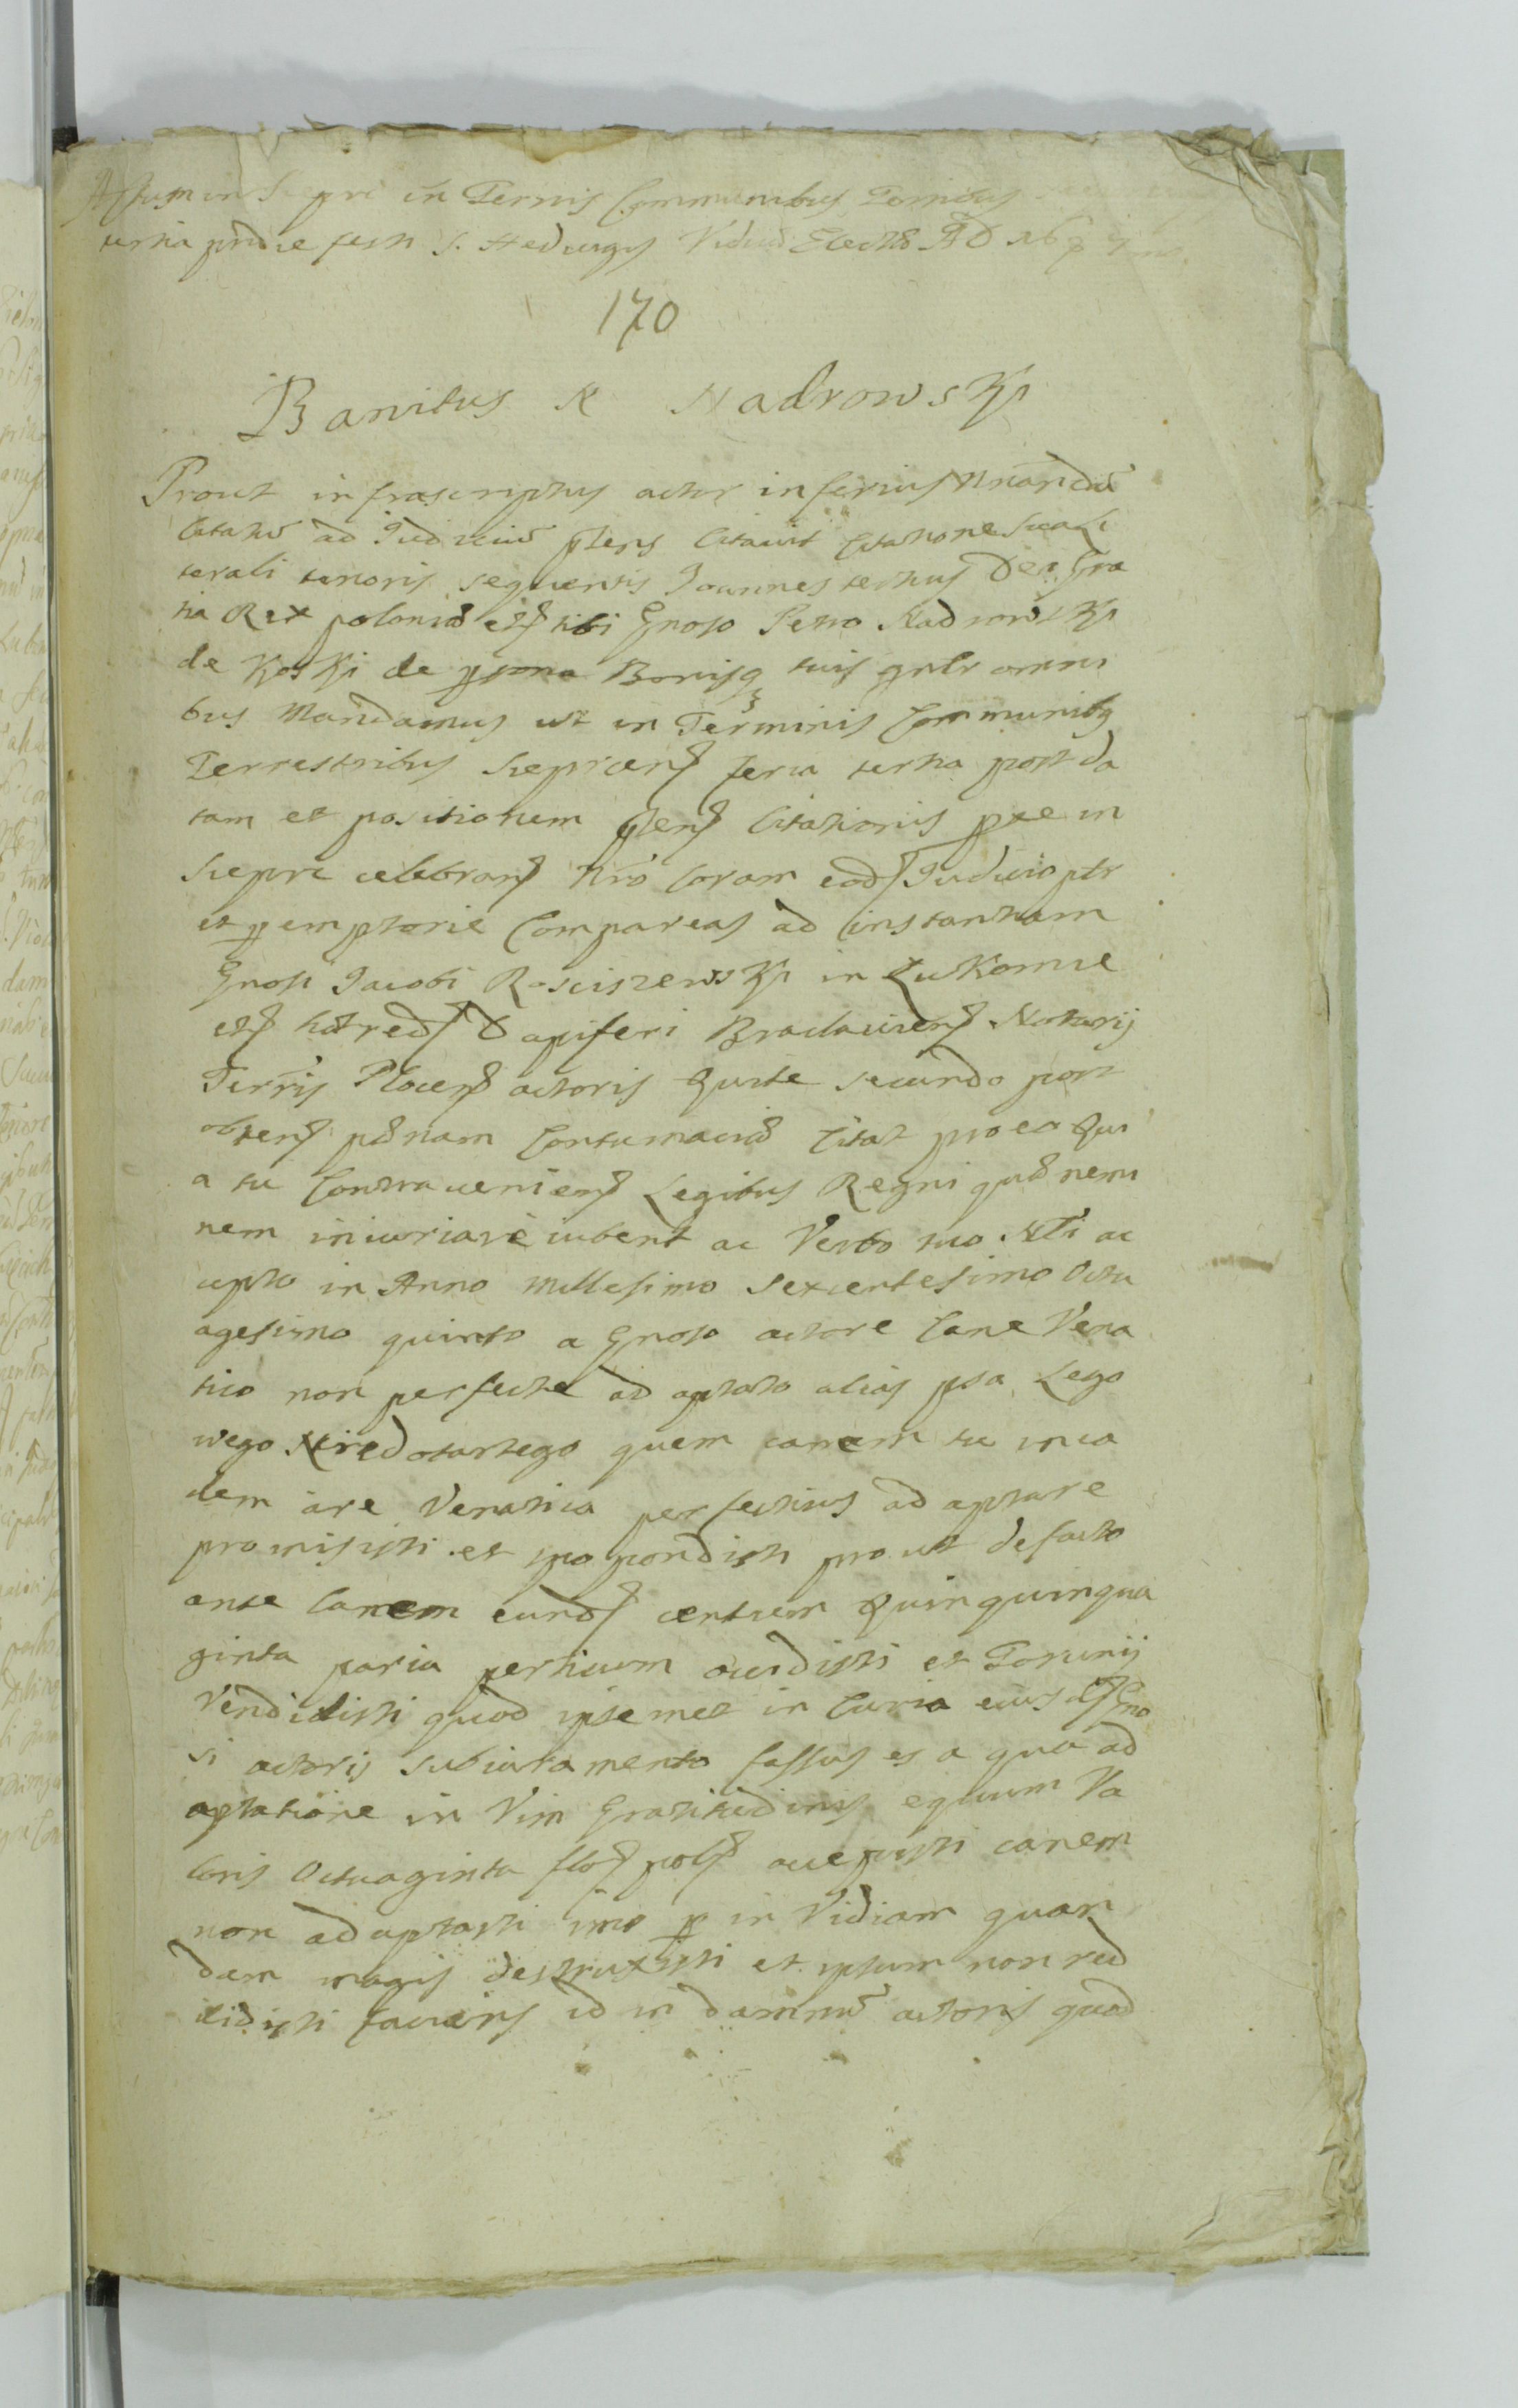 Actum in Siepri in Ternis Communibus Tornibus
tertia pridie festi S. Hedwigis Viduæ Electæ AD
170
Banitus R Nadrowskj
Prout infrascriptus actor inferius Nnandũ
Citatũ ad Iudiciũ pñens Citavit Citatione sua Li
terali tenoris sequentis Joannes tertius Dei Gra
tia Rex poloniæ etc tibi Gnoso Petro Nadrowskj
de Koskj de psona Bonisq tuis gnlr omni
bus Mandamus ut in Terminis Communibq
Terrestribus Sieprcens feria tertia post da
tam et positionem pñens Citationis pñe in
Siepre celebrand Nro Coram eod Iudicio pltr
et peremptorie Compareas ad instantiam
Gnosi Jacobi Rosciszewskj in Łukomie
etc hæred Dapiferi Braclaviens Notarij
Terris Plocens actoris Qui te secundo post
obtent pænam Contumaciæ Citat pro eo Qui
a tu Contraveniens Legibus Regni quæ nemi
nem iniuriare iubent ac Verbo tuo Nli ac
cepto in Anno Millesimo Sexcentesimo Octu
agesimo quinto a Gnoso actore Cane Vena
tico non perfecte ad aptato alias psa Lego
wego Niedostartego quem canem tu in ea
dem are Venatica perfectius ad aptare
promisisti et spopondisti prout de facto
ante Canem eund centum Quinquingua
ginta paria perticum occidisti et Torunij
Vendidisti quod ipsemet in Curia eius d Gno
si actoris sub iuramento fassus es a qua ad
aptatione in Vim Gratitudinis equum Va
loris Octuaginta flor pol accepisti canem
non adaptasti imo p in Vidiam quan
dam magis destruxisti et ipsum non red
didisti faciens id in damnũ actoris quod